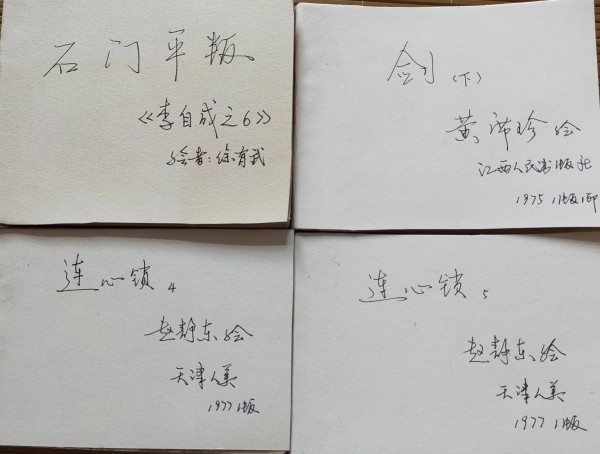 石门平叛
《李自成之6》
绘者：徐有武
剑（下）
黄席珍绘
江西人民出版社
1975 1版1印
连心锁 4
赵静东绘
天津人美
1977 1版
连心锁 5
赵静东绘
天津人美
1977 1版